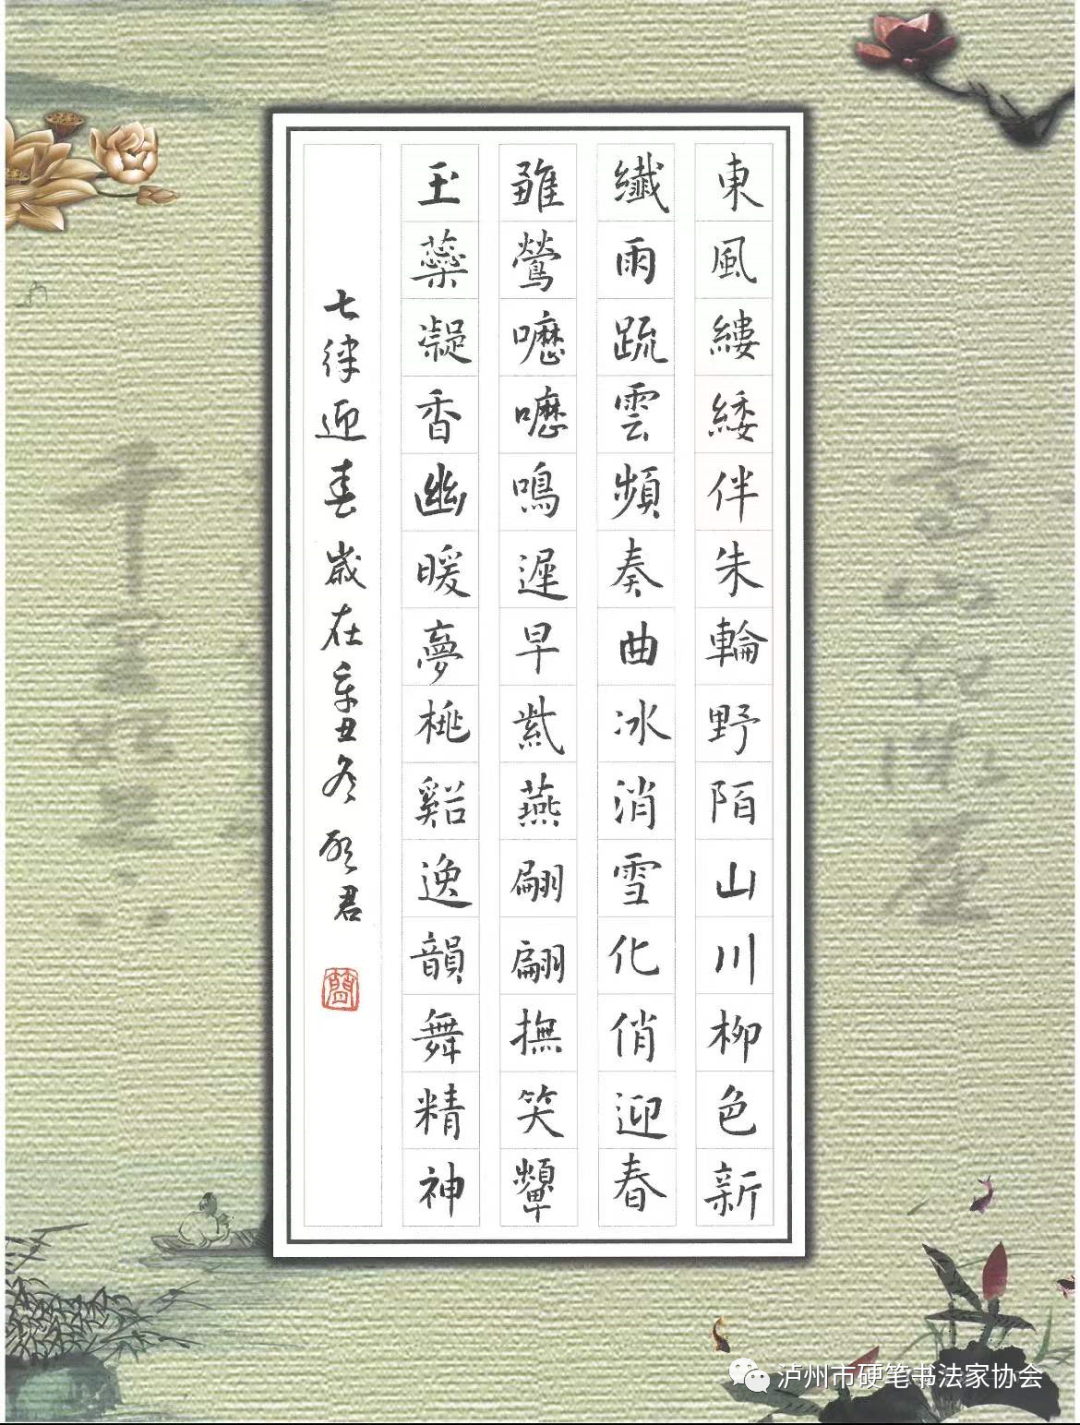 東風縷緌伴朱輪野陌山川柳色新
纖雨疏雲頻奏曲冰消雪化俏迎春
雛鶯嚦嚦鳴遲早紫燕翩翩撫笑顰
玉蘂凝香幽暖夢桃谿逸韻舞精神
七律迎春 歲在辛丑冬 君
泸州市硬笔书法家协会